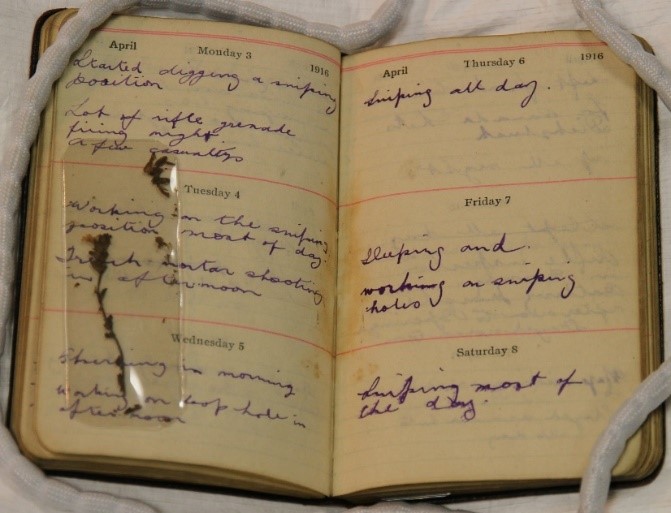 April Monday 3 1916
Started digging a sniping
position
Lot of rifle grenade
firing night
a few casualtys
Tuesday 4
Working on the sniping
position most of day.
Trench mortar shooting
in afternoon
Wednesday 5
in morning
working on loop hole in
afternoon
April Thursday 6 1916
Sniping all day.
Friday 7
Sleeping and.
working on sniping
holes
Saturday 8
Sniping most of
the day.